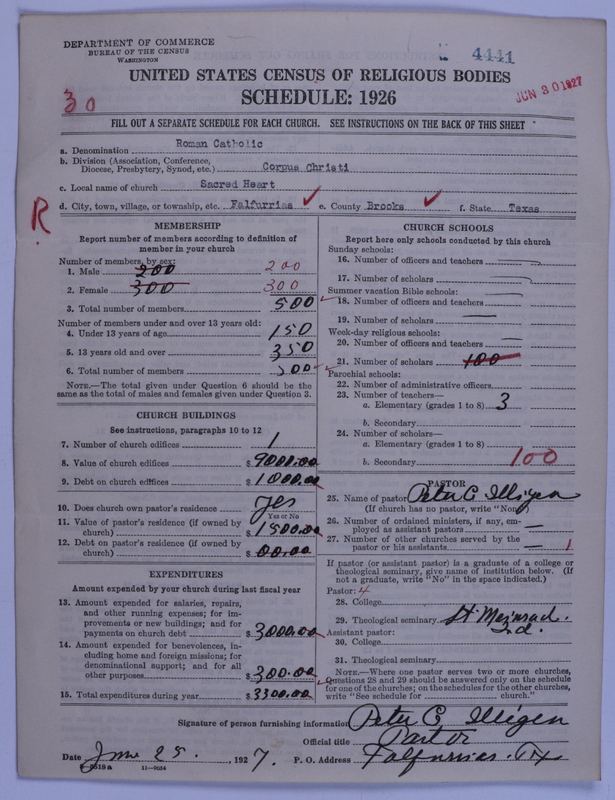 DEPARTMENT OF COMMERCE
BUREAU OF THE CENSUS
WASHINGTON
4441
UNITED STATES CENSUS OF RELIGIOUS BODIES
SCHEDULE: 1926
JUN 30 1927
30
FILL OUT A SEPARATE SCHEDULE FOR EACH CHURCH. SEE INSTRUCTIONS ON THE BACK OF THIS SHEET
a. Denomination Roman Catholic
b. Division (Association, Conference,
Diocese, Presbytery, Synod, etc.) Corpus Christi
c. Local name of church Sacred Heart
d. City, town, village, or township, etc. Falfurrias e. County Brooks f. State Texas
R
MEMBERSHIP
Report number of members according to definition of
member in your church
Number of members, by sex:
1. Male 200 200
2. Female 300 300
3. Total number of members 500
Number of members under and over 13 years old:
4. Under 13 years of age 150
5. 13 years old and over 350
6. Total number of members 500
NOTE.—The total given under Question 6 should be the
same as the total of males and females given under Question 3.
CHURCH BUILDINGS
See instructions, paragraphs 10 to 12
7. Number of church edifices 1
8. Value of church edifices $ 9000.00
9. Debt on church edifices $ 1000.00
10. Does church own pastor's residence? yes
Yes or No
11. Value of pastor's residence (if owned by
church) $ 1500.00
12. Debt on pastor's residence (if owned by
church) $ 00.00
EXPENDITURES
Amount expended by your church during last fiscal year
13. Amount expended for salaries, repairs,
and other running expenses; for im-
provements or new buildings; and for
payments on church debt $ 3000.00
14. Amount expended for benevolences, in-
cluding home and foreign missions; for
denominational support; and for all
other purposes $ 300.00
15. Total expenditures during year $ 3300.00
CHURCH SCHOOLS
Report here only schools conducted by this church
Sunday schools:
16. Number of officers and teachers —
17. Number of scholars —
Summer vacation Bible schools:
18. Number of officers and teachers —
19. Number of scholars —
Week-day religious schools:
20. Number of officers and teachers —
21. Number of scholars 100
Parochial schools:
22. Number of administrative officers
23. Number of teachers—
a. Elementary (grades 1 to 8) 3
b. Secondary
24. Number of scholars—
a. Elementary (grades 1 to 8)
b. Secondary 100
PASTOR
25. Name of pastor Peter C Illigen
(If church has no pastor, write "None")
26. Number of ordained ministers, if any, em-
ployed as assistant pastors —
27. Number of other churches served by the
pastor or his assistants — 1
If pastor (or assistant pastor) is a graduate of a college or
theological seminary, give name of institution below. (If
not a graduate, write "No" in the space indicated.)
Pastor: 4
28. College
29. Theological seminary St Meinrad. Ind.
Assistant pastor:
30. College
31. Theological seminary
NOTE.—Where one pastor serves two or more churches,
Questions 28 and 29 should be answered only on the schedule
for one of the churches; on the schedules for the other churches,
write "See schedule for church."
Signature of person furnishing information Peter C Illigen
Official title Pastor
Date June 25. , 1927. P. O. Address Falfurrias. TX
8-5519a 11-9034